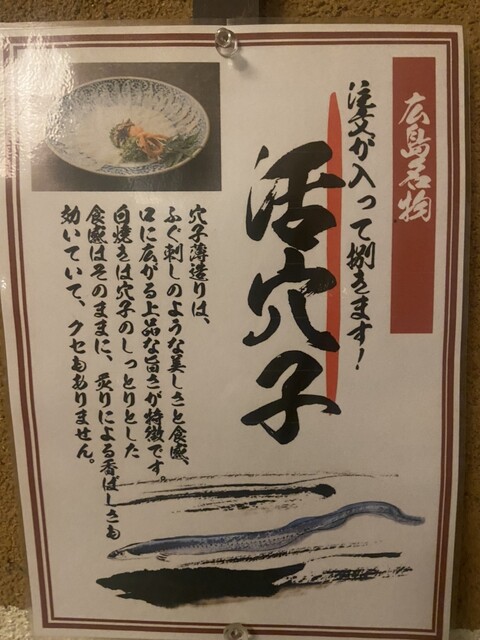 広島名物
注文が入って捌きます!
活穴子
穴子薄造りは、
ふぐ刺しのような美しさと食感、
口に広がる上品な旨さが特徴です。
白焼きは穴子のしっとりとした
食感はそのままに、炙りによる香ばしさも
効いていて、クセもありません。